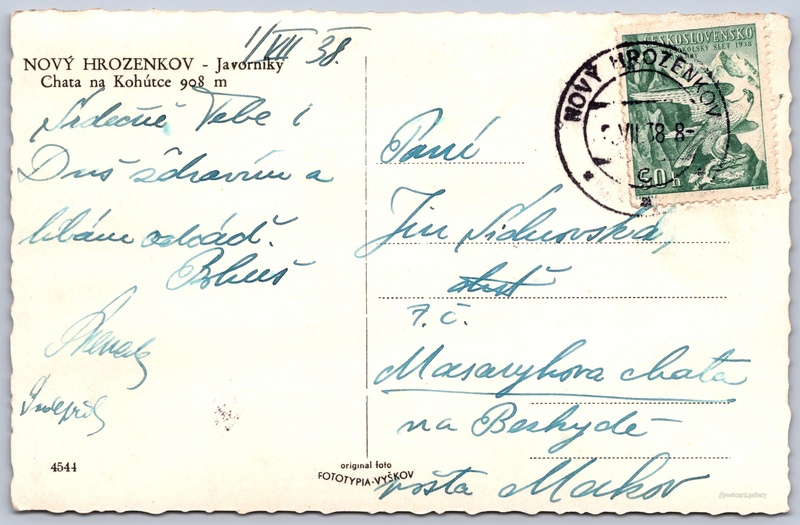 1/VII 38.
NOVÝ HROZENKOV - Javorníky
Chata na Kohútce 908 m
Srdečně Tebe i
Duš zdravím a
líbám odvád.
Bohuš
4544
original foto
FOTOTYPIA-VYŠKOV
ČESKOSLOVENSKO
SOKOLSKÝ SLET 1938
50 h
NOVÝ HROZENKOV
VII 38 8-
Paní
t. č.
Masarykova chata
na Beskydě
pošta Makov